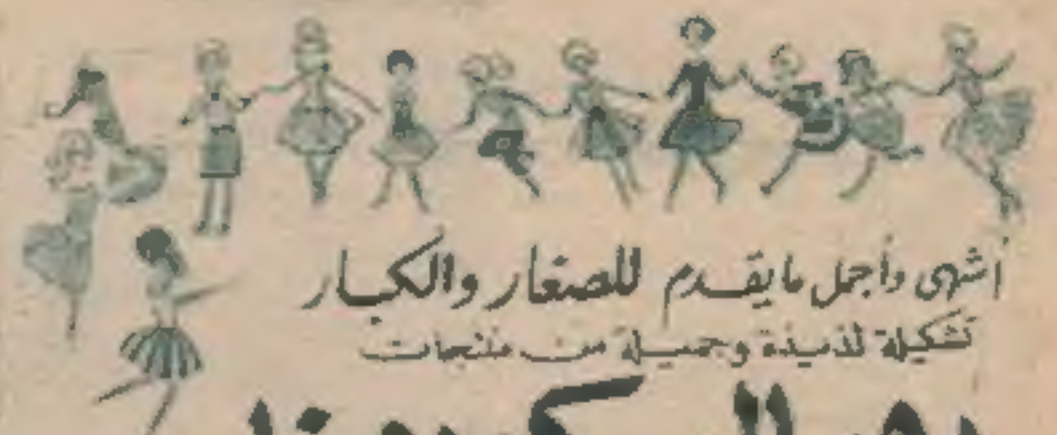 أشهى وأجمل ما يقدم للصغار والكبار
تشكيلة لذيذة وجميلة من منتجات